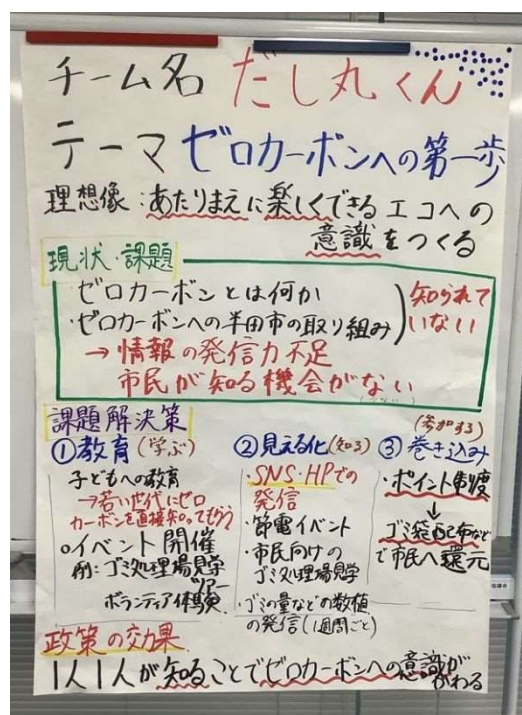 チーム名 だし丸くん
テーマ ゼロカーボンへの第一歩
理想像：あたりまえに楽しくできるエコへの
意識をつくる
現状・課題
・ゼロカーボンとは何か
・ゼロカーボンへの半田市の取り組み
知られて
いない
→情報の発信力不足
市民が知る機会がない
課題解決策
①教育(学ぶ)
子どもへの教育
→若い世代にゼロ
カーボンを直接知ってもらう
○イベント開催
例：ゴミ処理場見学
ツアー
ボランティア体験
②見える化(知る)
・SNS・HPでの
発信
・節電イベント
・市民向けの
ゴミ処理場見学
・ゴミの量などの数値
の発信(1週間ごと)
(参加する)
③巻き込み
・ポイント制度
↓
ゴミ袋配布など
で市民へ還元
政策の効果
1人1人が知ることでゼロカーボンへの意識が
かわる